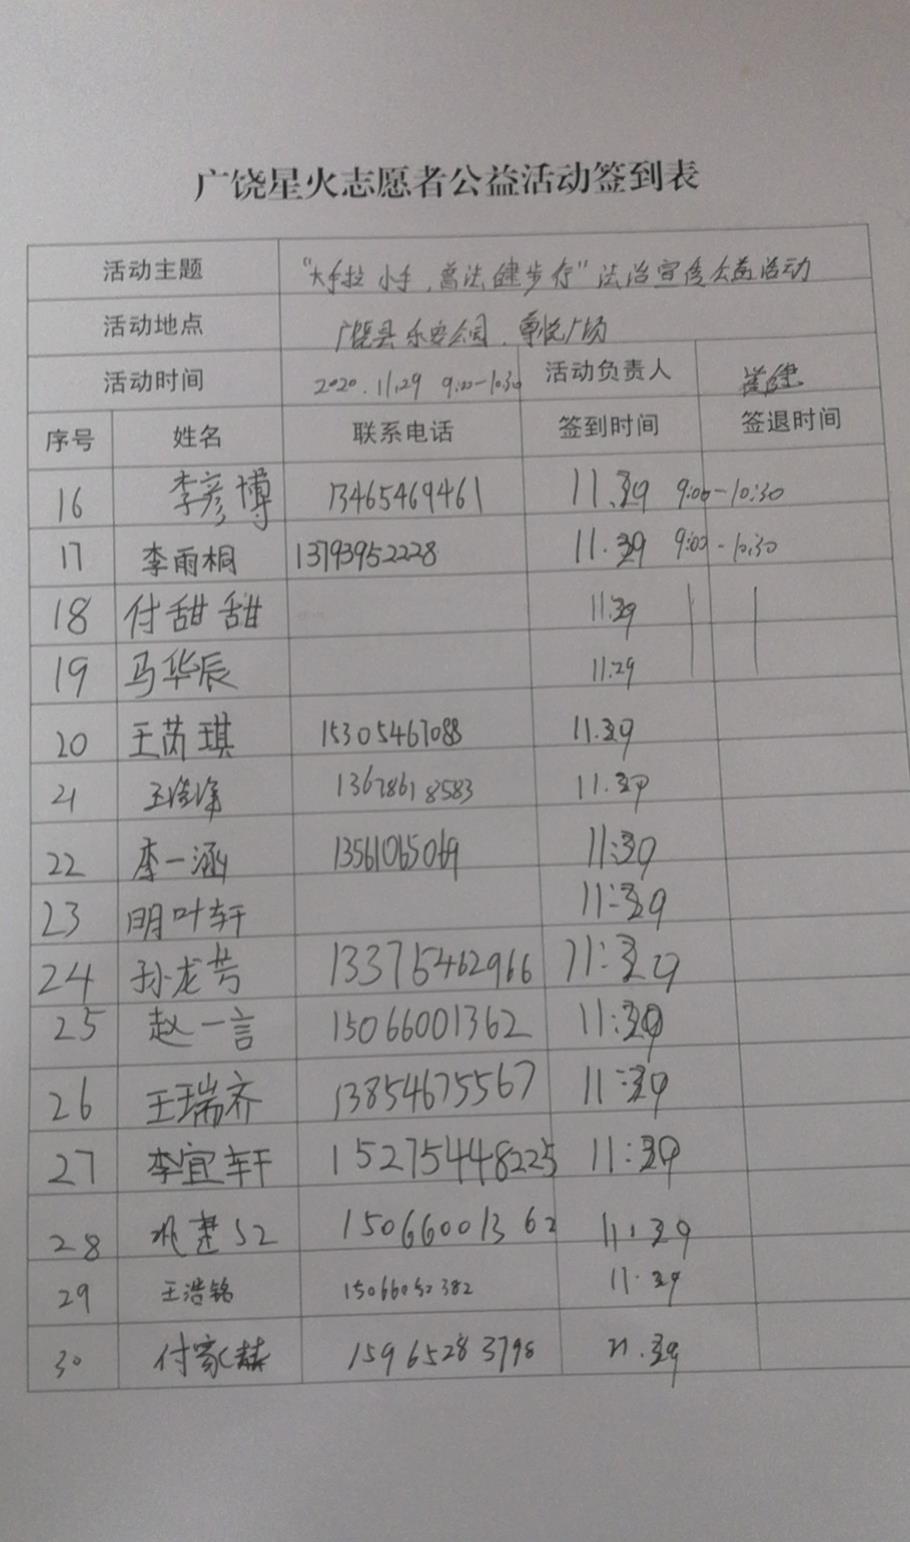 广饶星火志愿者公益活动签到表
活动主题 "大手拉小手,普法健步行"法治宣传公益活动
活动地点 广饶县乐安公园、尊悦广场
活动时间 2020.11.29 9:00-10:30 活动负责人
序号 姓名 联系电话 签到时间 签退时间
16 李彦博 13465469461 11.29 9:00-10:30
17 李雨桐 13793952228 11.29 9:00-10:30
18 付甜甜 11.29
19 马华辰 11.29
20 王芮琪 15305467088 11.29
21 13678618583 11.29
22 李一涵 13561065069 11:29
23 明叶轩 11:29
24 孙龙 13375462966 11:29
25 赵一言 15066001362 11:29
26 王瑞齐 13854675567 11:29
27 李宜轩 15275448225 11:29
28 15066001362 11.29
29 王浩铭 15066052382 11.29
30 付家赫 15965283798 11.29